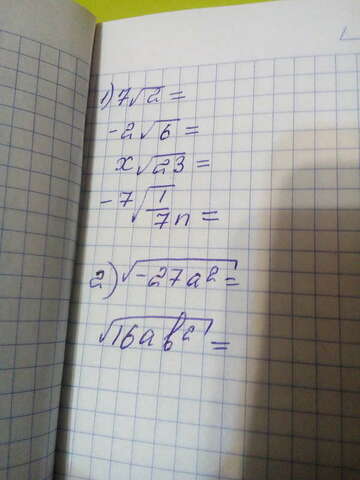 1) 7√2 =
-2√6 =
x√23 =
-7√1/7 n =
2) √-27a² =
√16ab² =